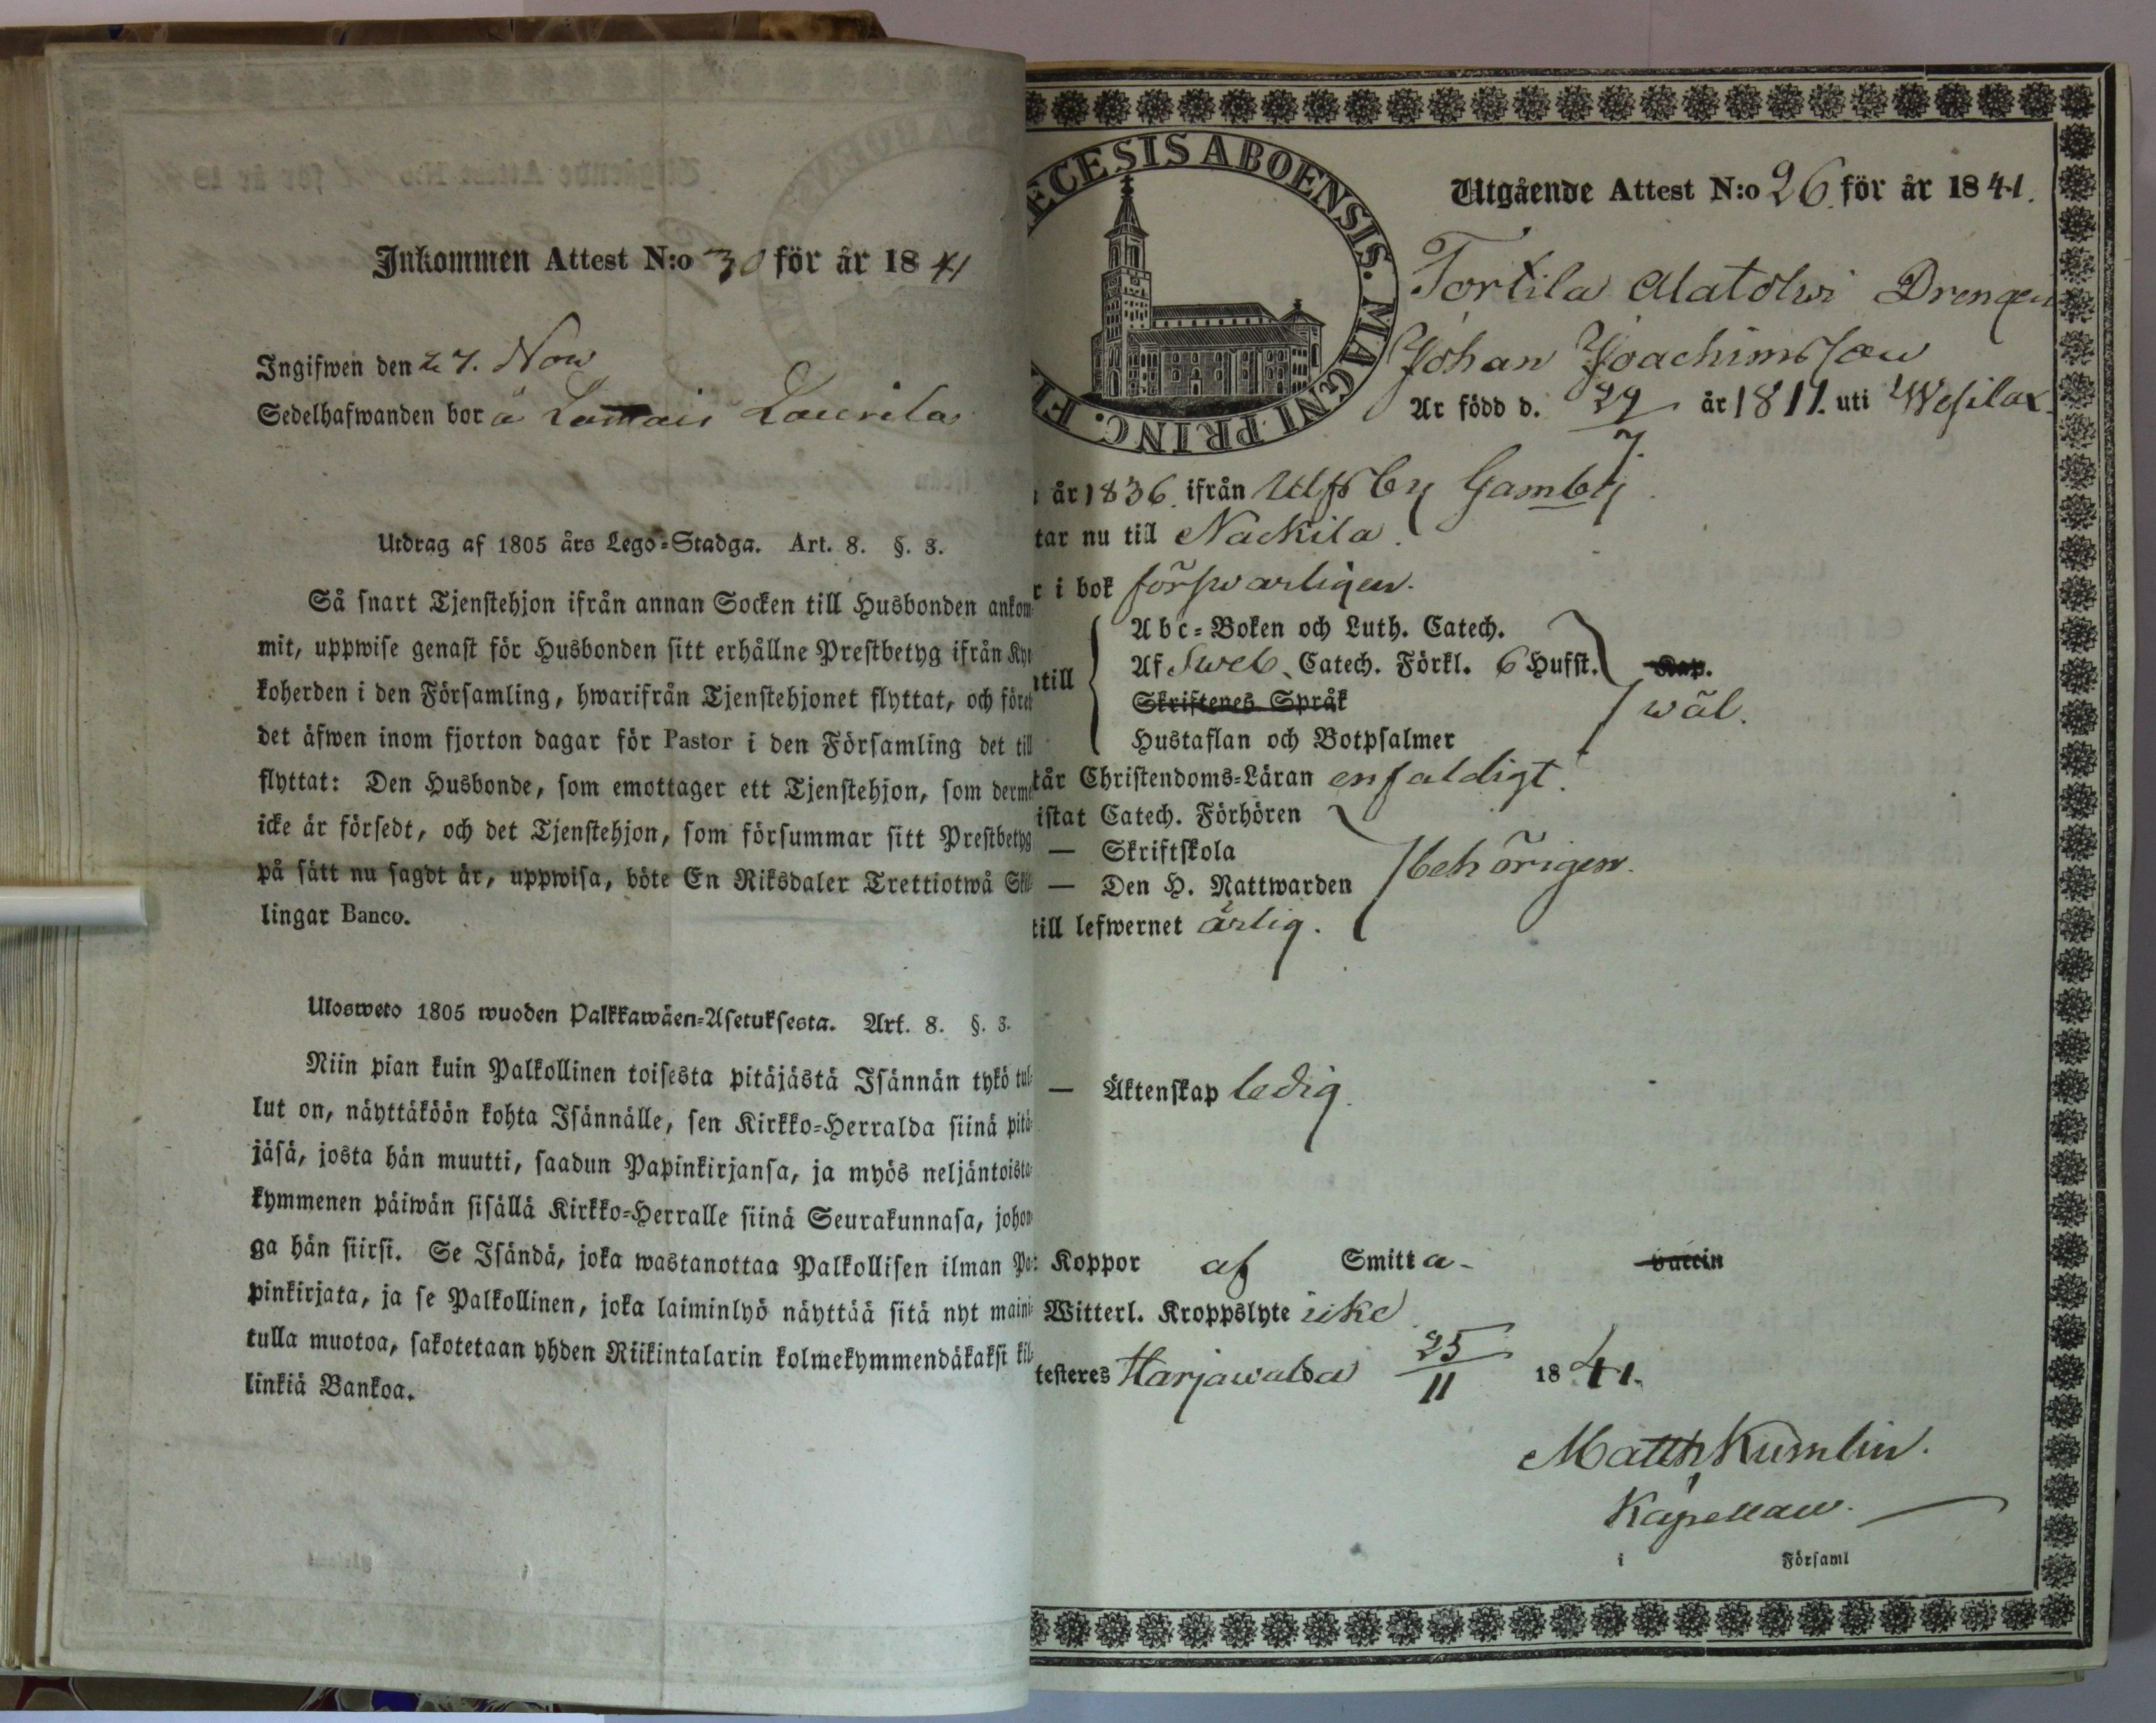 Inkommen Attest N:o 30 för år 1841
Ingifwen den 27. Nov
Sedelhafwanden bor å Lammais Laurila
Utdrag af 1805 års Lego-Stadga. Art. 8. §. 3.
Så snart Tjenstehjon ifrån annan Socken till Husbonden ankom-
mit, uppwise genast för Husbonden sitt erhållne Prestbetyg ifrån Kyr
koherden i den Församling, hwarifrån Tjenstehjonet flyttat, och förete
det äfwen inom fjorton dagar för Pastor i den Församling det till
flyttat: Den Husbonde, som emottager ett Tjenstehjon, som derme
icke är försedt, och det Tjenstehjon, som försummar sitt Prestbetyg
på sätt nu sagdt är, uppwisa, böte En Riksdaler Trettiotwå Skil
lingar Banco.
Ulosweto 1805 wuoden Palkkawäen-Asetuksesta. Art. 8. §. 3.
Niin pian kuin Palkollinen toisesta pitäjästä Isännän tykö tul-
lut on, näyttäköön kohta Isännälle, sen Kirkko-Herralda siinä pitä-
jäsä, josta hän muutti, saadun Papinkirjansa, ja myös neljäntoista-
kymmenen päiwän sisällä Kirkko-Herralle siinä Seurakunnasa, johon-
ga hän siirsi. Se Isändä, joka wastanottaa Palkollisen ilman Pa-
pinkirjata, ja se Palkollinen, joka laiminlyö näyttää sitä nyt maini-
tulla muotoa, sakotetaan yhden Riikintalarin kolmekymmendäkaksi kil-
linkiä Bankoa.
ECESIS ABOENSIS. MAGNI PRINC. FI
Utgående Attest N:o 26 för år 1841.
Torttila Alatolwi Drengen
Johan Joachimsson
Är född d. 29/7. år 1811. uti Wesilax.
år 1836. ifrån Ulfsby Gamby.
tar nu till Nackila.
r i bok förswarligen.
Abc-Boken och Luth. Catech.
till Af Sweb. Catech. Förkl. 6 Hufst. Kap.
Skriftenes Språk wäl.
Hustaflan och Botpsalmer
tår Christendoms-Läran enfaldigt.
istat Catech. Förhören
— Skriftskola
— Den H. Nattwarden behörigen.
till lefwernet ärlig.
— Äktenskap ledig.
Koppor af Smitta- vaccin
Witterl. Kroppslyte icke
testeres Harjawalda 25/11 1841.
Matth Kumlin.
Kapellan.
i Församl